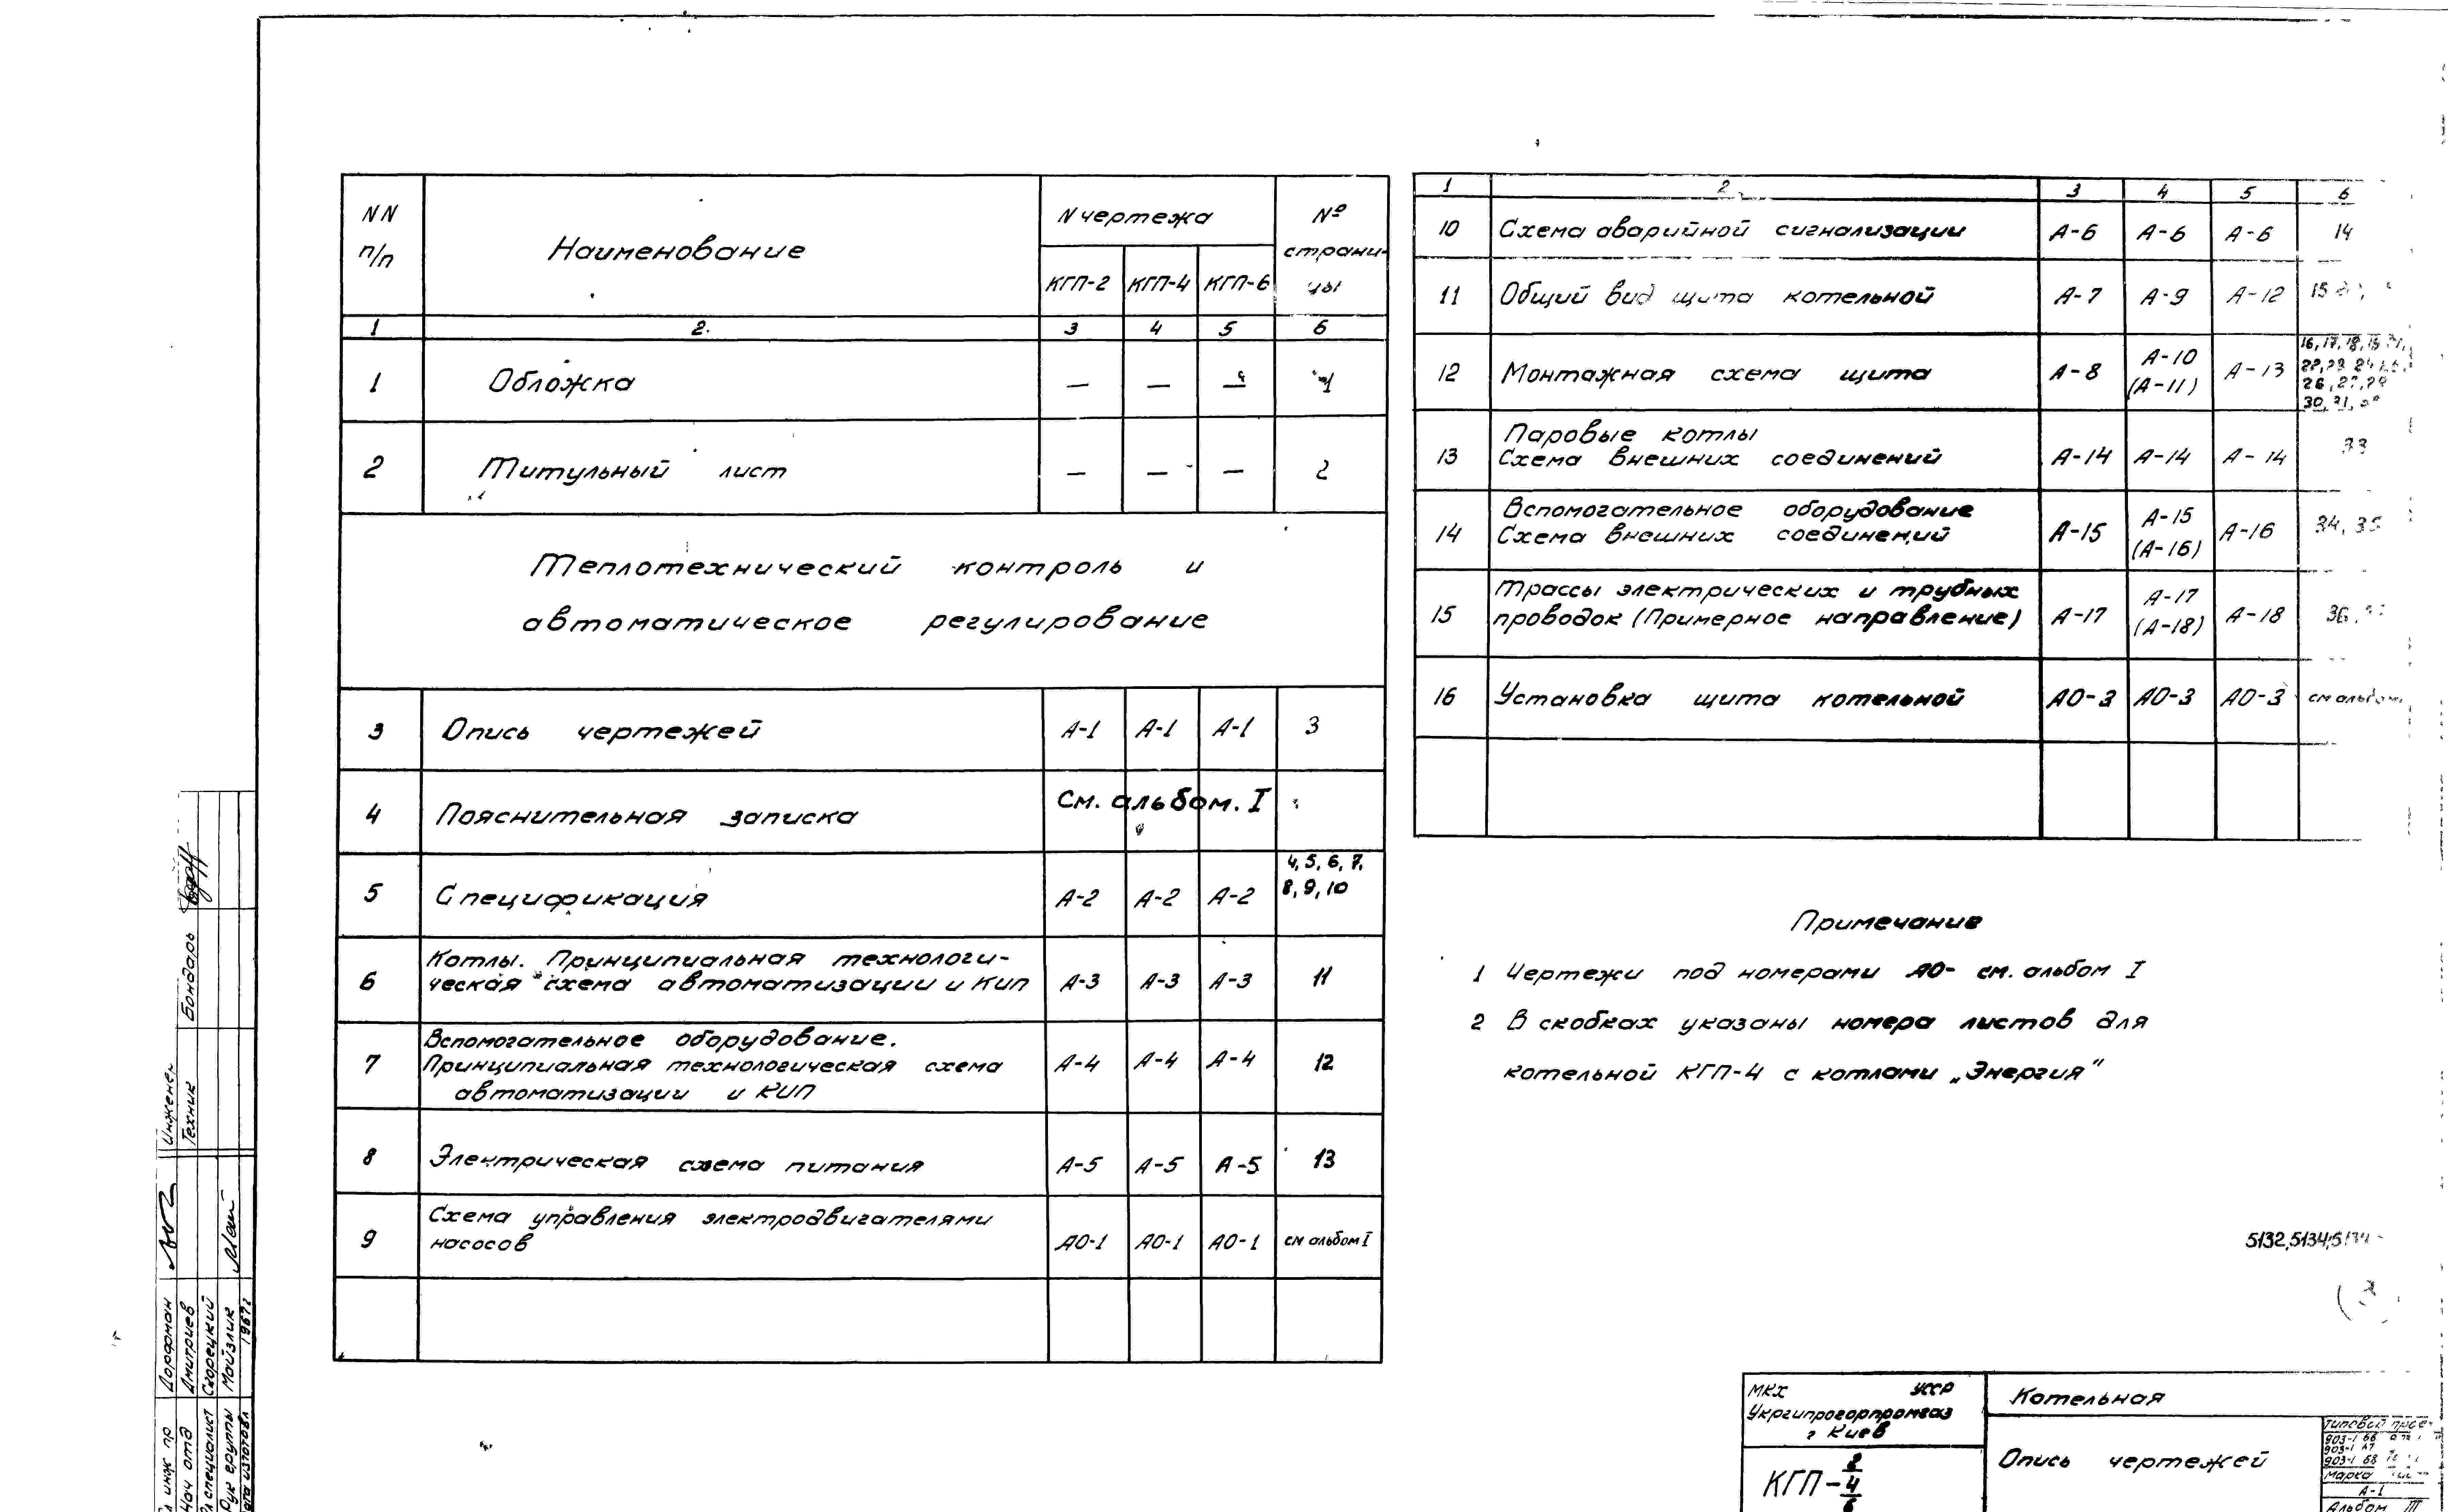 NN п/п
Наименование
N чертежа
№ страницы
КГП-2 КГП-4 КГП-6
1 2. 3 4 5 6
1 Обложка — — — 1
2 Титульный лист — — — 2
Теплотехнический контроль и
автоматическое регулирование
3 Опись чертежей А-1 А-1 А-1 3
4 Пояснительная записка См. альбом. I
5 Спецификация А-2 А-2 А-2 4, 5, 6, 7,
8, 9, 10
Котлы. Принципиальная технологи-
6 ческая схема автоматизации и кип А-3 А-3 А-3 11
Вспомогательное оборудование.
7 Принципиальная технологическая схема А-4 А-4 А-4 12
автоматизации и КИП
8 Электрическая схема питания А-5 А-5 А-5 13
Схема управления электродвигателями
9 насосов АО-1 АО-1 АО-1 см альбом I
1 2 3 4 5 6
10 Схема аварийной сигнализации А-6 А-6 А-6 14
11 Общий вид щита котельной А-7 А-9 А-12 15
16, 17, 18, 19
12 Монтажная схема щита А-8 А-10 (А-11) А-13
26, 27,
30, 31,
Паровые котлы
13 Схема внешних соединений А-14 А-14 А-14 33
Вспомогательное оборудование
14 Схема внешних соединений А-15 А-15 (А-16) А-16 34, 35
Трассы электрических и трубных
15 проводок (Примерное направление) А-17 А-17 (А-18) А-18 36,
16 Установка щита котельной АО-3 АО-3 АО-3 см альбом
Примечание
1 Чертежи под номерами АО- см. альбом I
2 В скобках указаны номера листов для
котельной КГП-4 с котлами „Энергия"
5132, 5134,
МКХ УССР
Укргипрогорпромгаз
г Киев
КГП- 2/4/6
Котельная
Опись чертежей
Типовой прое
903-1
903-1
903-1 68
Марка
А-1
Альбом III
Инженер
Техник Бондарь
инж пр Дорфман
Нач отд Дмитриев
специалист Сгорецкий
Рук группы Майзлик
изготовл 1967г